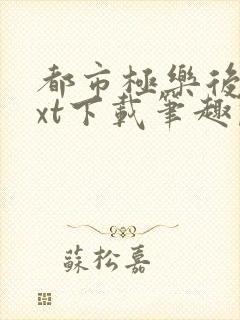 都市極樂後
xt下載筆趣
蘇松嘉